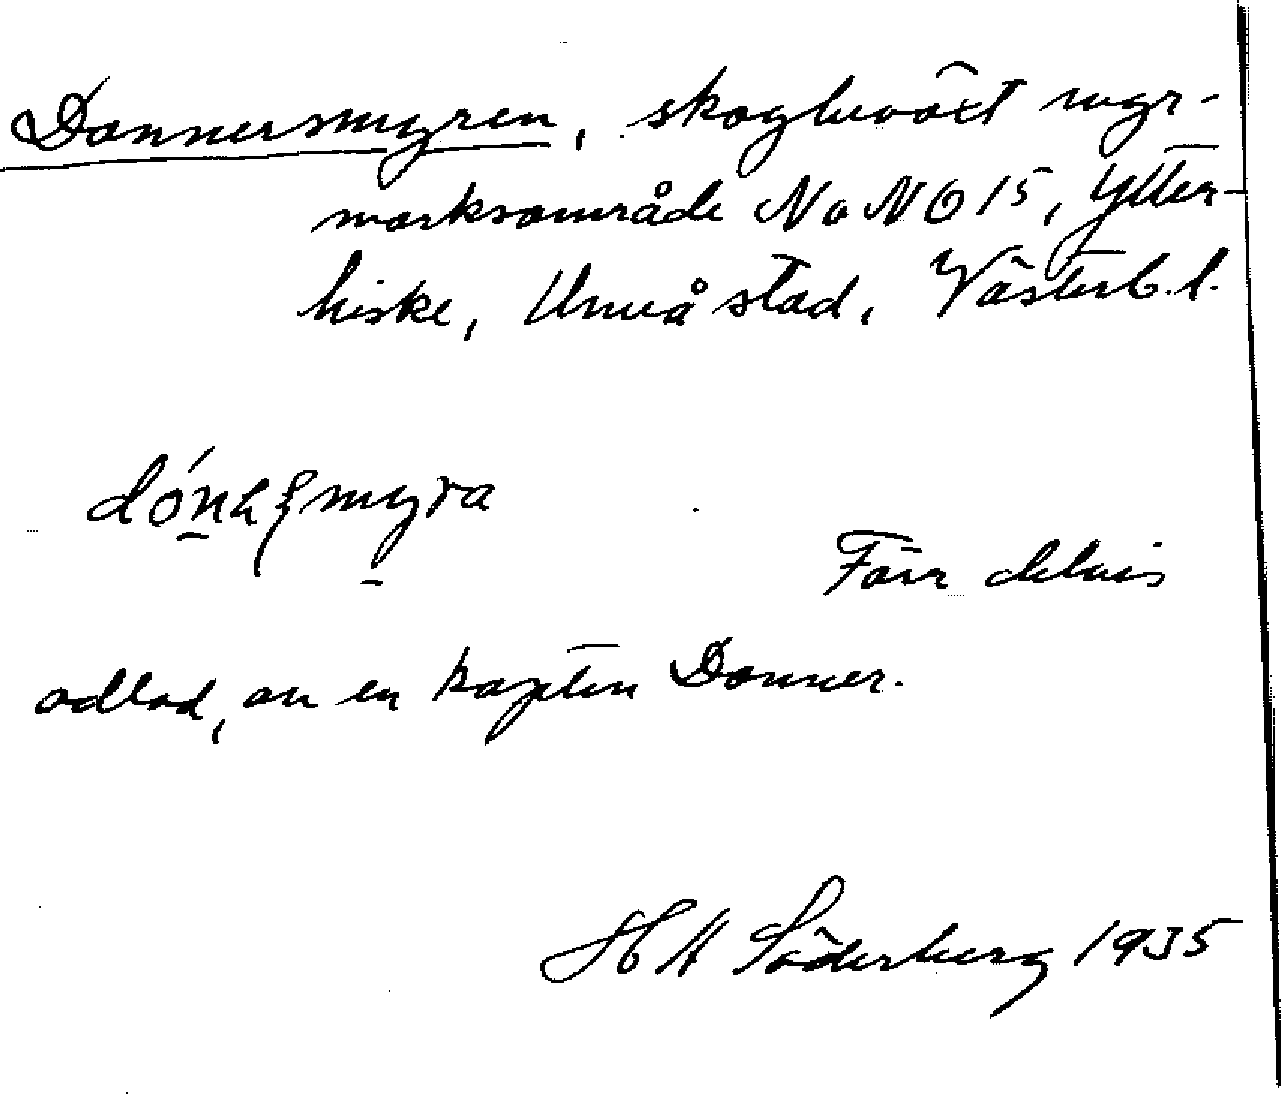 Donnersmyren, skogbeväxt myr-
marksområde No NO 15, Ytter-
hiske, Umeå stad, Västerb. l.
Förr delvis
odlad, av en kapten Donner.
H A Söderberg 1935